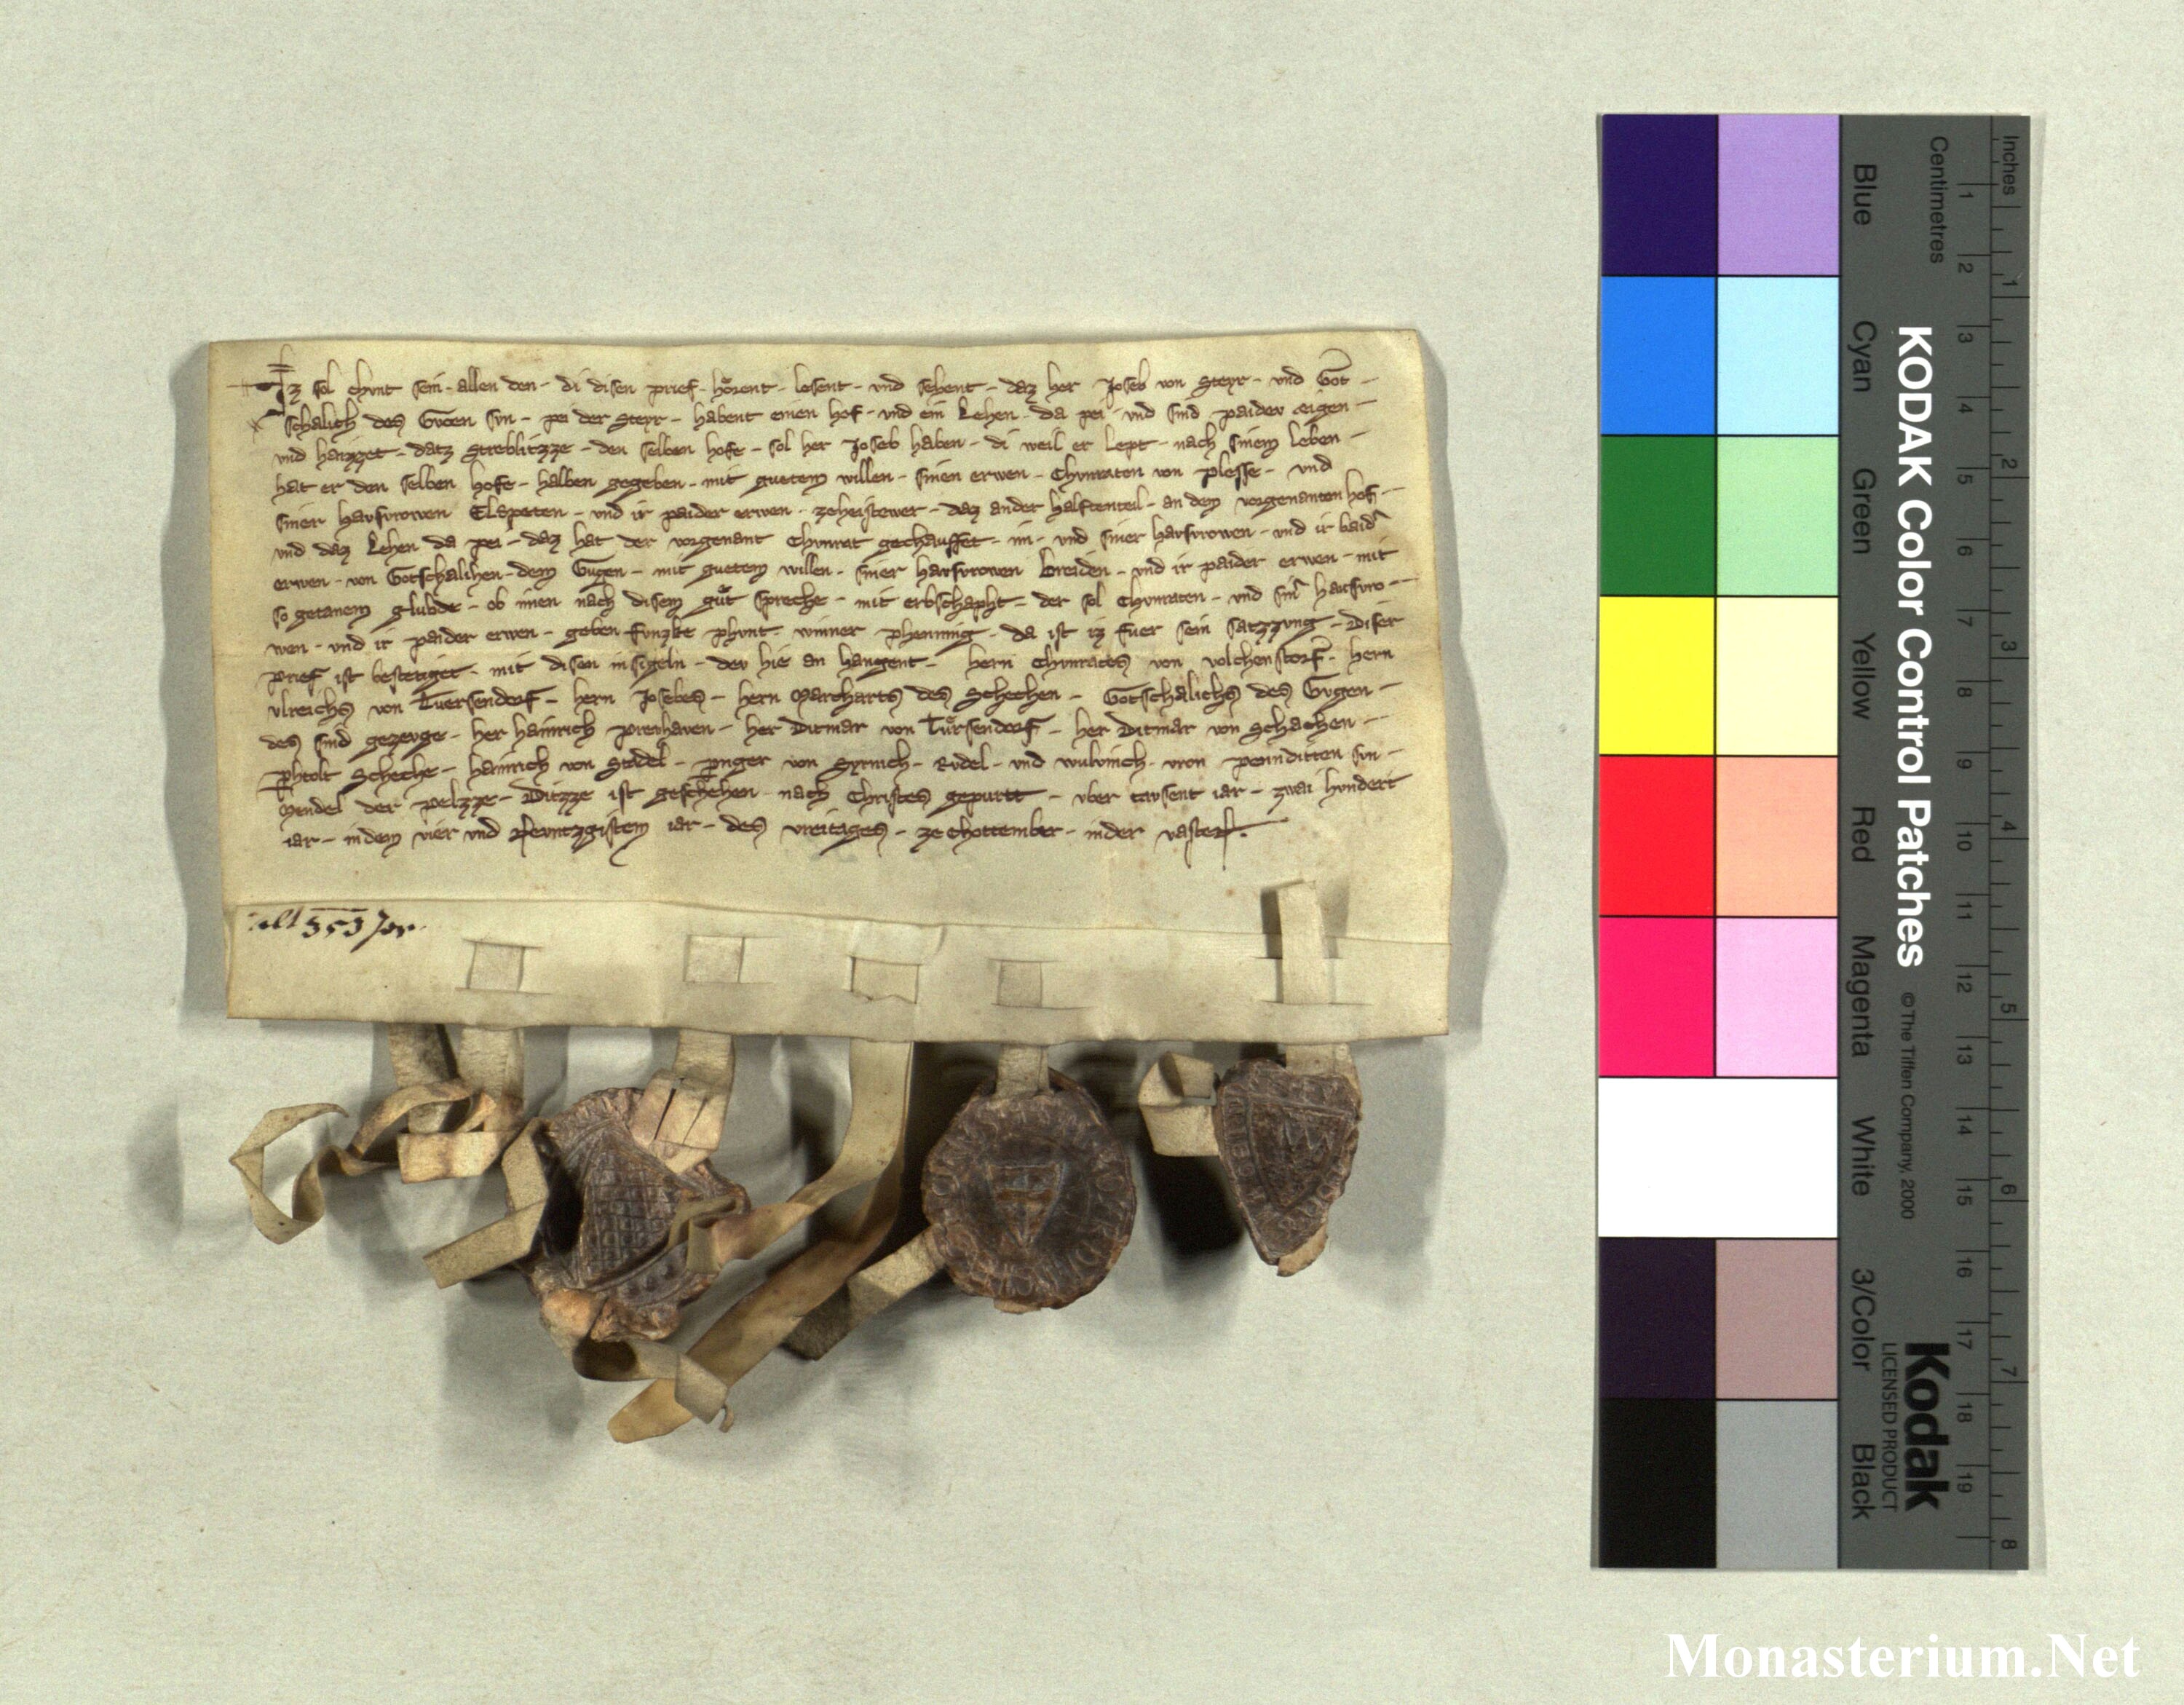 Iz sol chunt sein - allen den - di disen prief - hörent - lesent - vnd sehent - daz her Joseb von Steyr - vnd Got -
schalich des Gvgen svn - pei der Steyr - habent einen hof - vnd ein Lehen - da pei - vnd sind paidev aigen -
vnd haizzet - datz Streblitzze - den selben hofe - sol her Joseb haben - di weil er lept - nach sinem leben -
hat er den selben hofe - halben gegeben - mit guetem willen - sinen erwen - Chvnraten von plesse - vnd
siner havsvrowen Elspeten - vnd ir paider erwen - ze heistewer - daz ander halftenteil - an dem vorgenanten hof -
vnd daz Lehen da pei - daz hat der vorgenant Chvnrat gechauffet - im - vnd siner havsvrowen - vnd ir baid'
erwen - von Gotschalihen - dem Gvgen - mit guetem willen - siner havsvrowen Breiden - vnd ir paider erwen - mit
so getanem glubde - ob innen nach disem gůt spreche - mit erbschapht - der sol Chvnraten - vnd sin' havsvro -
wen - vnd ir paider erwen - geben fvnzke phvnt - winner phenning - da ist iz fuer sein satzzvng - Diser
prief ist bestetiget - mit disen insigeln - dev hie an hangent - hern Chvnrates von volchenstorf - hern
vlreichs von Tuersendorf - hern Josebes - hern Marcharts des Schechen - Gotschalichs des Gvgen -
des sind gezevge - her hainrich prevhaven - her Ditmar von Tůrsendorf - her Ditmar von Schachen -
phtolt Scheche - hainrich von Stadel - pnger von Syrnich - Rvdel - vnd wulvinch - vron penninditten svn -
Mendel der pelzze - Ditzze ist geschehen nach Christes gepurtt - vber tavsent iar - zwai hvndert
iar - in dem vier vnd nevntzgistem iar - des vreitages - ze chottember - in der vasten.
alt 353 Jar.
KODAK Color Control Patches © The Tiffen Company, 2000
Kodak
LICENSED PRODUCT
Inches 1 2 3 4 5 6 7 8
Centimetres 1 2 3 4 5 6 7 8 9 10 11 12 13 14 15 16 17 18 19
Blue Cyan Green Yellow Red Magenta White 3/Color Black
Monasterium.Net